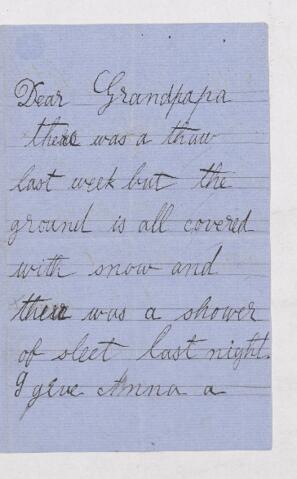 Dear Grandpapa
there was a thaw
last week but the
ground is all covered
with snow and
there was a shower
of sleet last night.
I give Anna a